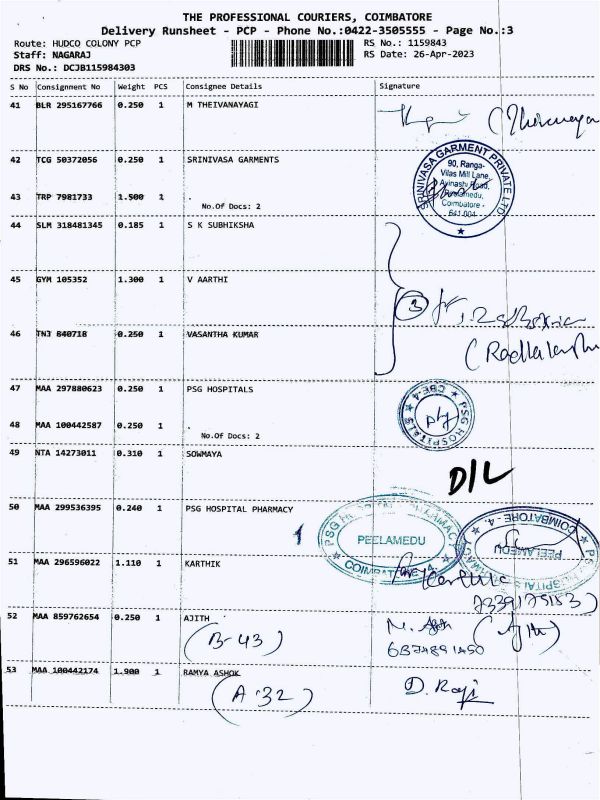 THE PROFESSIONAL COURIERS, COIMBATORE
Delivery Runsheet - PCP - Phone No.:0422-3505555 - Page No.:3
Route: HUDCO COLONY PCP
RS No.: 1159843
Staff: NAGARAJ
RS Date: 26-Apr-2023
DRS No.: DCJB115984303
S No Consignment No Weight PCS Consignee Details Signature
41 BLR 295167766 0.250 1 M THEIVANAYAGI
42 TCG 50372056 0.250 1 SRINIVASA GARMENTS
SRINIVASA GARMENT PRIVATE LTD
90, Ranga-
Vilas Mill Lane,
Avinashi Road,
Peelamedu,
Coimbatore -
641 004.
43 TRP 7981733 1.500 1 .
No.Of Docs: 2
44 SLM 318481345 0.185 1 S K SUBHIKSHA
45 GYM 105352 1.300 1 V AARTHI
3
46 TNJ 840718 0.250 1 VASANTHA KUMAR
47 MAA 297880623 0.250 1 PSG HOSPITALS
PSG HOSPITALS CBE-4
48 MAA 100442587 0.250 1 .
No.Of Docs: 2
49 NTA 14273011 0.310 1 SOWMAYA
D/L
50 MAA 299536395 0.240 1 PSG HOSPITAL PHARMACY
1
PEELAMEDU
COIMBATORE - 4.
PEELAMEDU
51 MAA 296596022 1.110 1 KARTHIK
Karthik
7339175183)
52 MAA 859762654 0.250 1 AJITH
(B-43)
(Ajith)
6374891450
53 MAA 100442174 1.900 1 RAMYA ASHOK
(A-32)
D. Raji